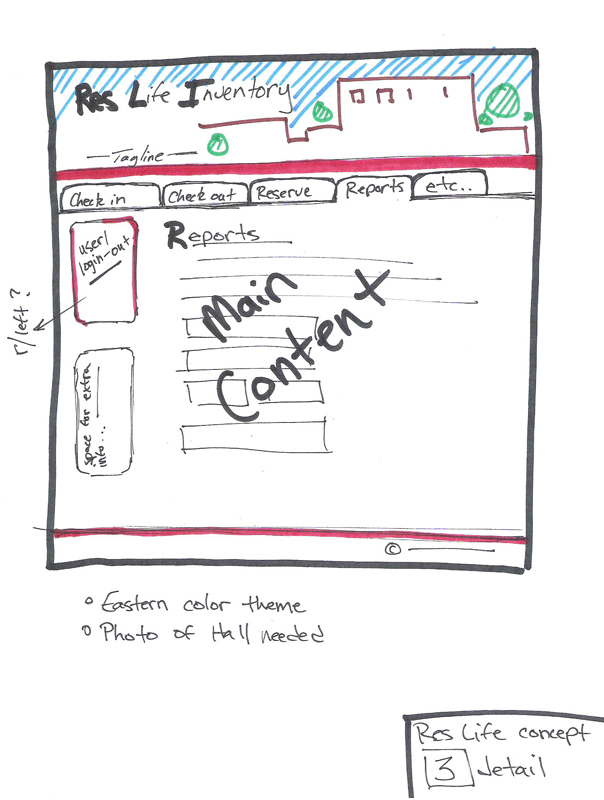 Res Life Inventory
Tagline
Check in
Check out
Reserve
Reports
etc..
user/
login-out
r/left?
space for extra
info...
Reports
Main
Content
©
Eastern color theme
Photo of Hall needed
Res Life concept
3 detail